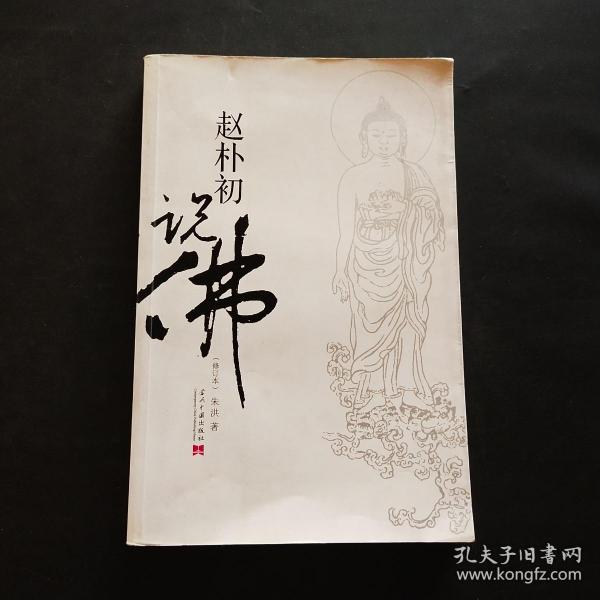 赵朴初
说佛
（修订本）朱洪 著
当代中国出版社
孔夫子旧书网
www.kongfz.com